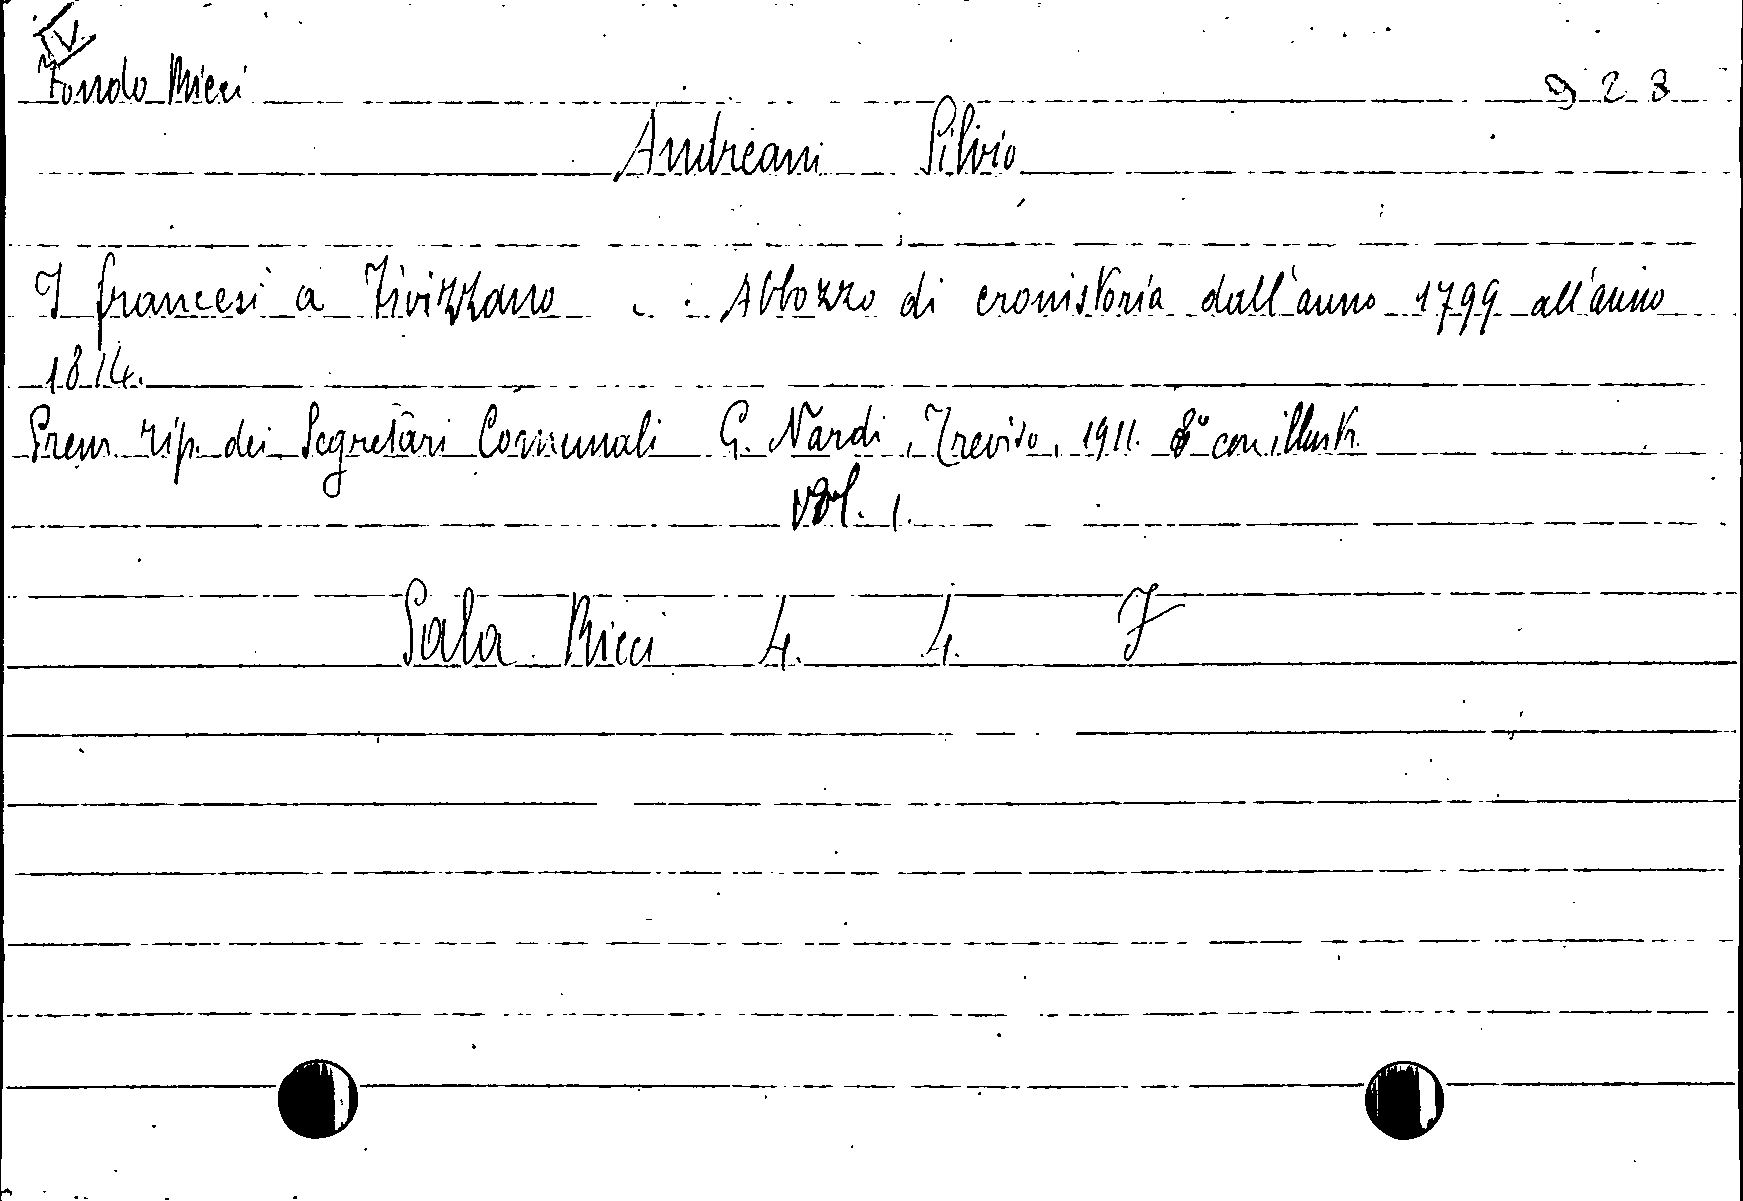 IV.
Fondo Ricci 923
Andreani Silvio
I francesi a Fivizzano . . Abbozzo di cronistoria dall'anno 1799 all'anno
1814.
Prem. tip. dei Segretari Comunali G. Nardi, Treviso, 1911. 8° con illustr.
Vol. 1.
Sala Ricci 4. 4. F